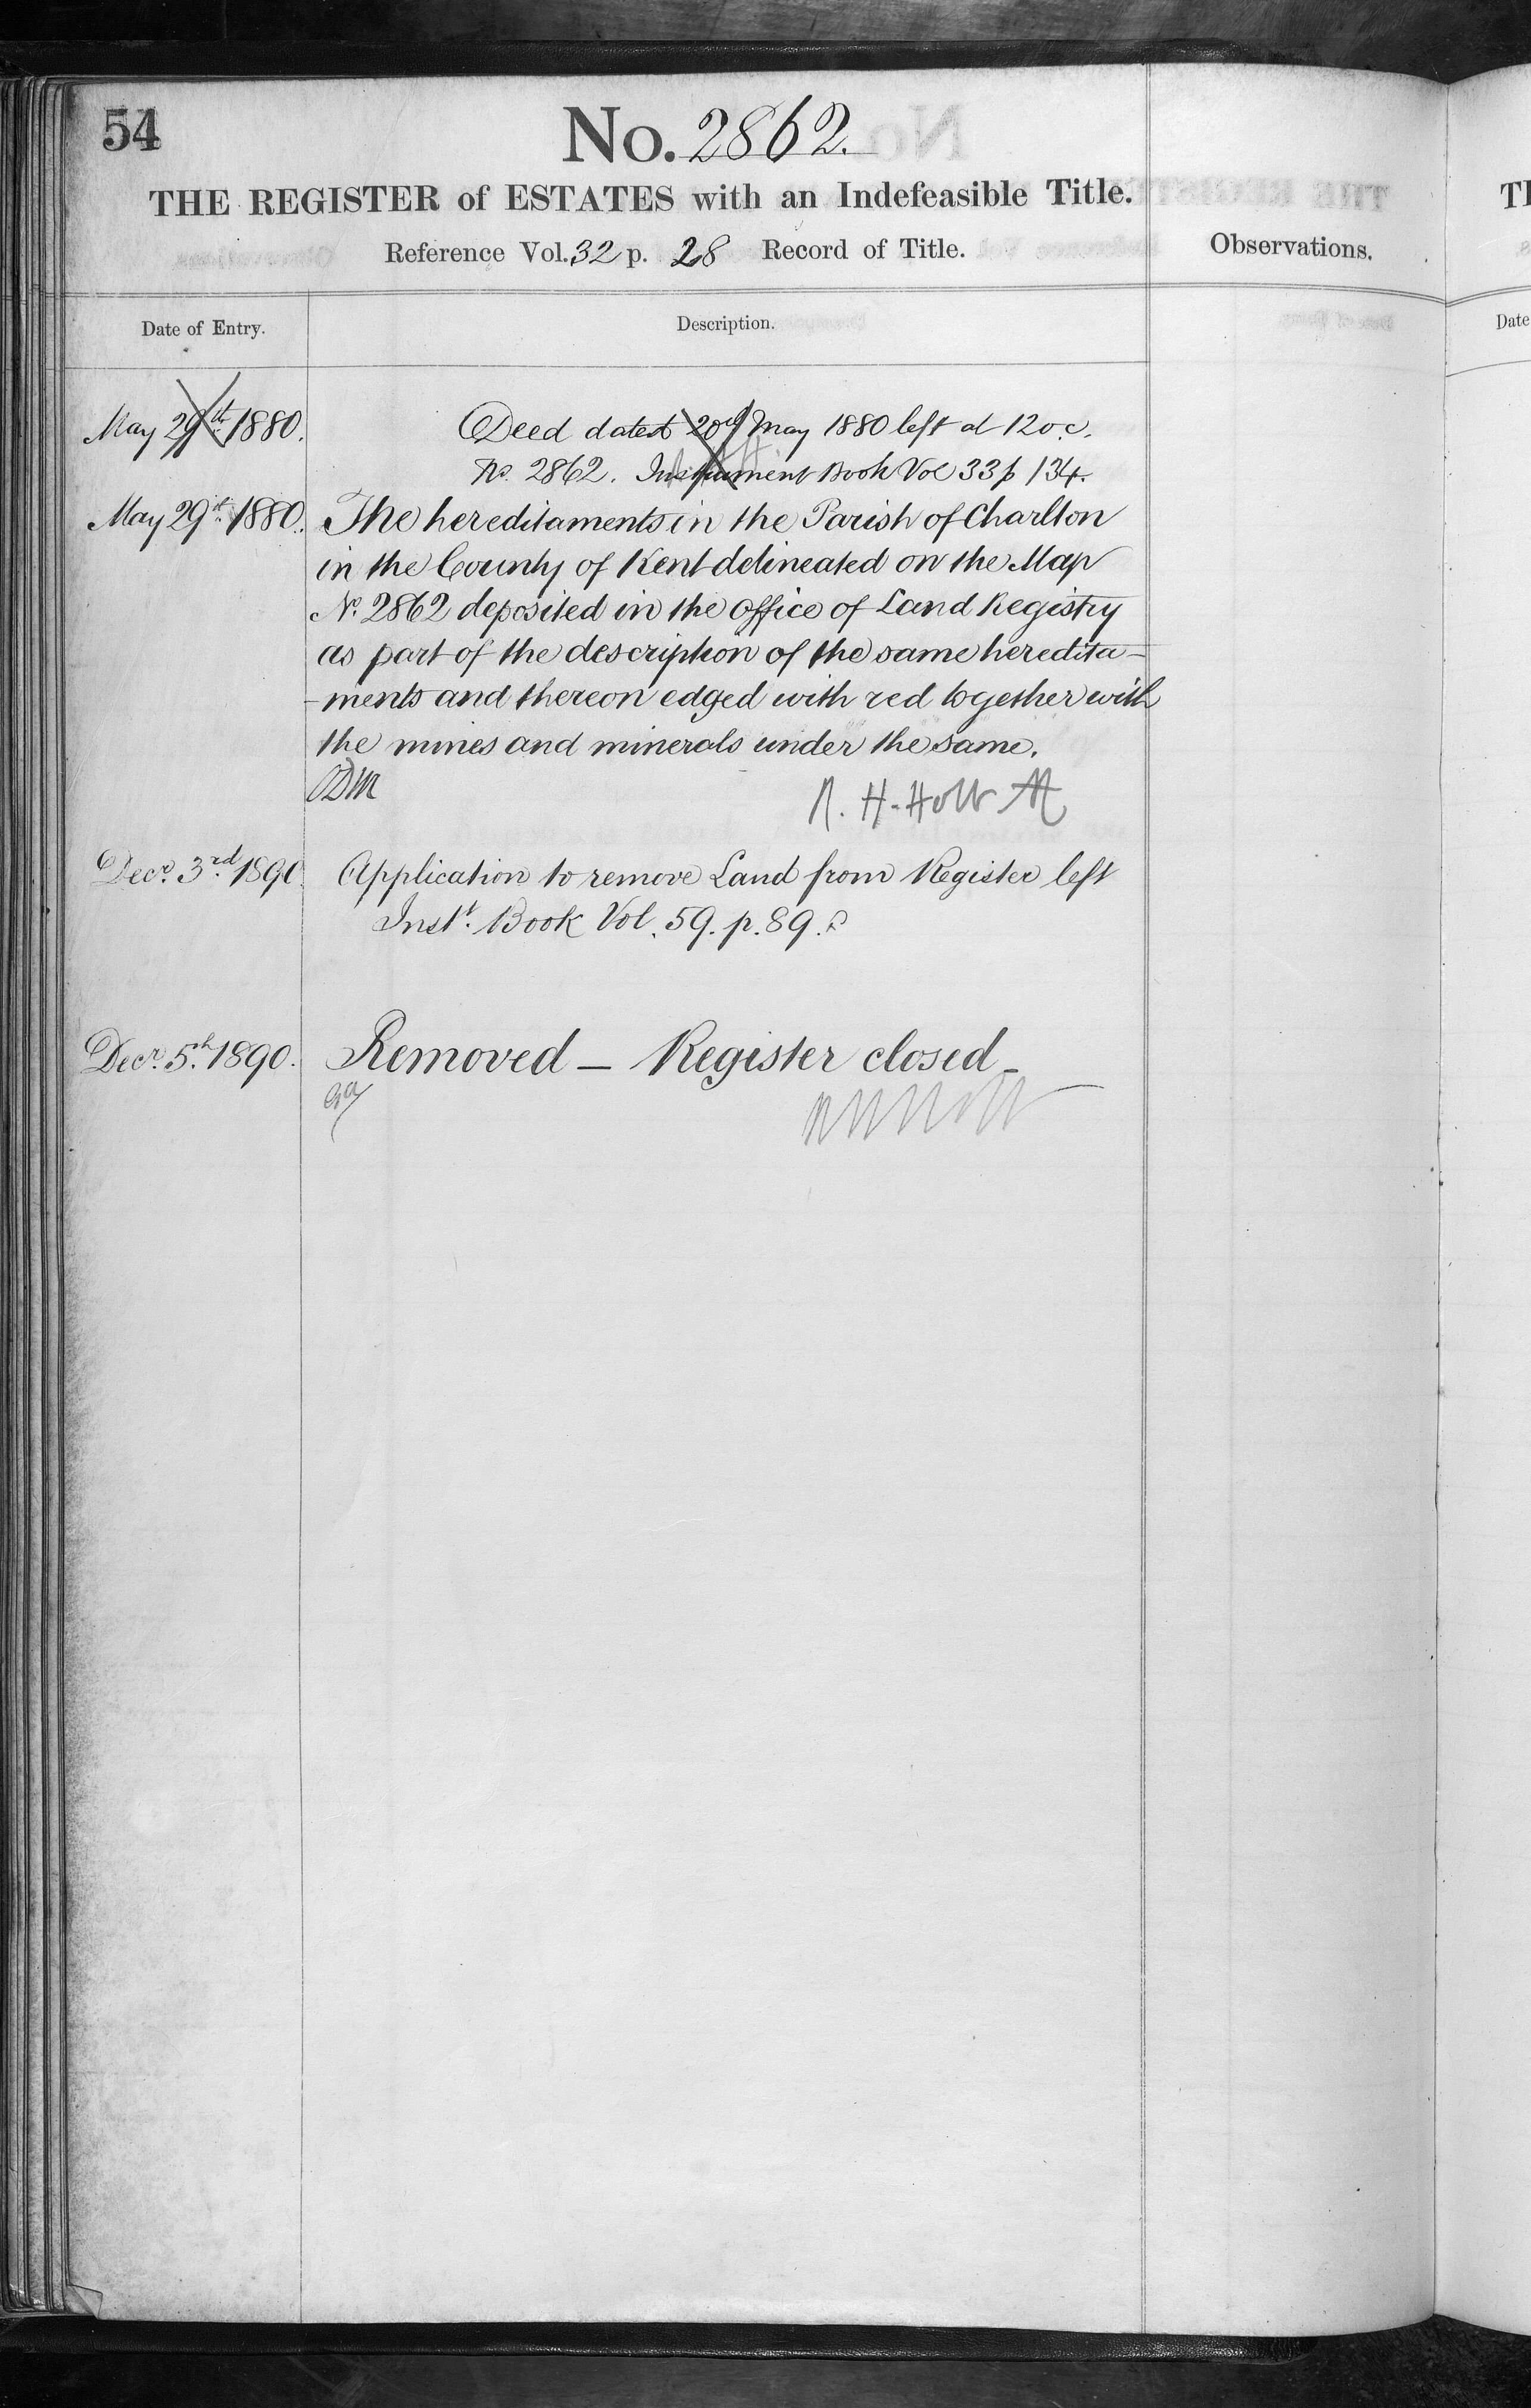 54
No. 2862.
THE REGISTER of ESTATES with an Indefeasible Title.
Reference Vol. 32 p. 28 Record of Title.
Observations.
Date of Entry.
Description.
Date
May 29th 1880.
Deed dated May 1880 left at 12 o.c.
No. 2862. Instrument Book Vol 33 p 134.
May 29th 1880. The hereditaments in the Parish of Charlton
in the County of Kent delineated on the Map
No. 2862 deposited in the office of Land Registry
as part of the description of the same heredita-
-ments and thereon edged with red together with
the mines and minerals under the same.
R. H. Holt AR
Decr. 3rd 1890. Application to remove Land from Register left
Inst. Book Vol. 59. p. 89.
Decr. 5th 1890. Removed — Register closed —